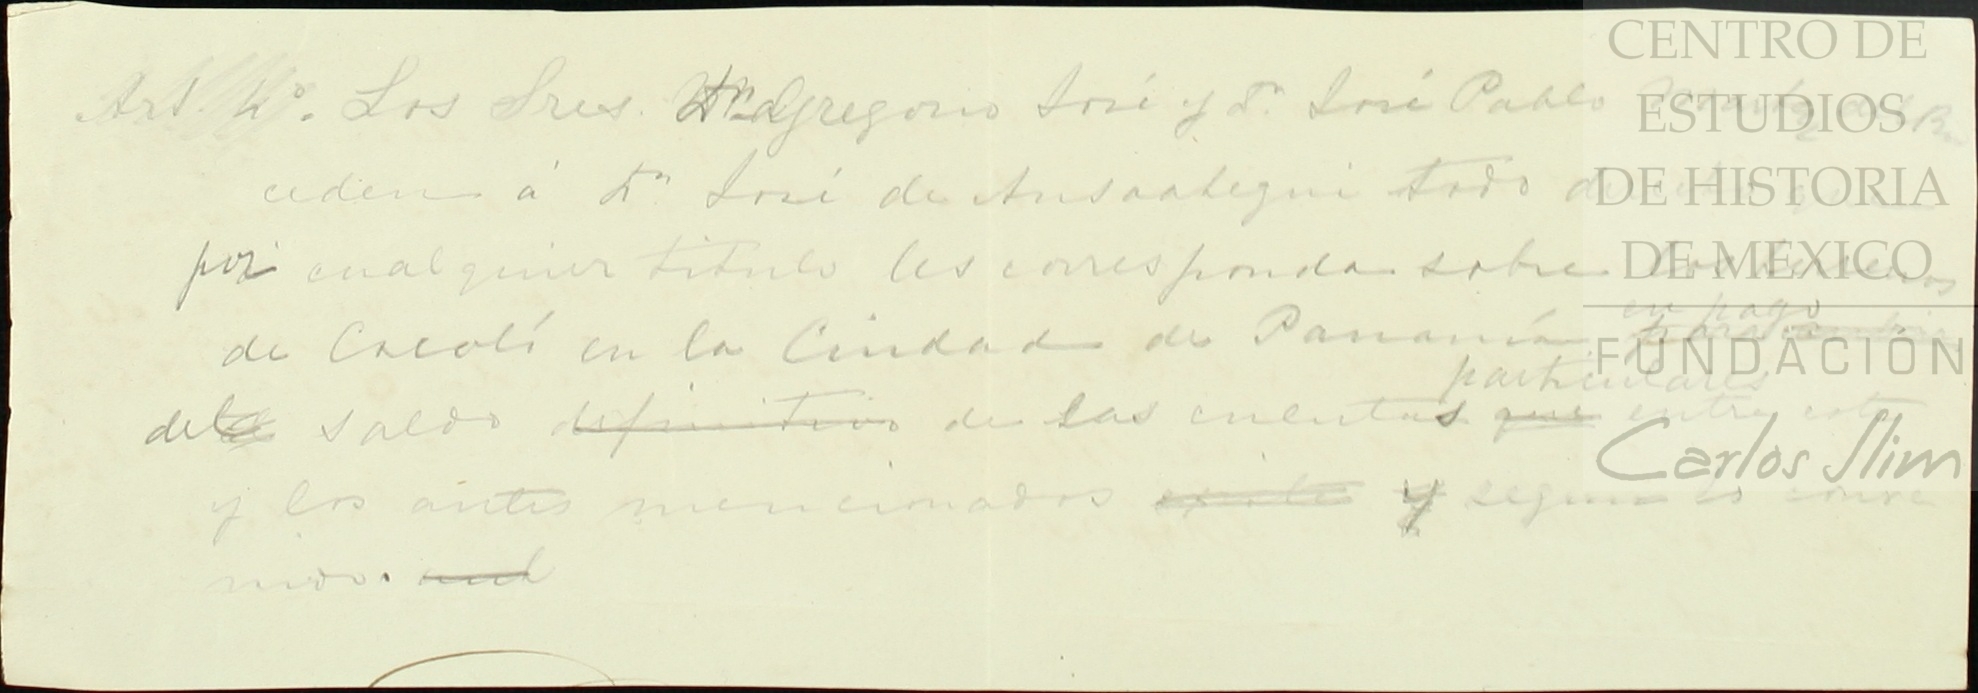 Art. 4º. Los Sres. Dn. Gregorio José y Dn. José Pablo Martz del R
ceden á Dn. José de Ansoategui todo
por cualquier titulo les corresponda sobre los terrenos
de Cocolí en la Ciudad de Panamá en pago
particulares
del saldo definitivo de las cuentas que entre este
y los antes mencionados existe y segun lo conve
nido.
CENTRO DE
ESTUDIOS
DE HISTORIA
DE MÉXICO
FUNDACIÓN
Carlos Slim